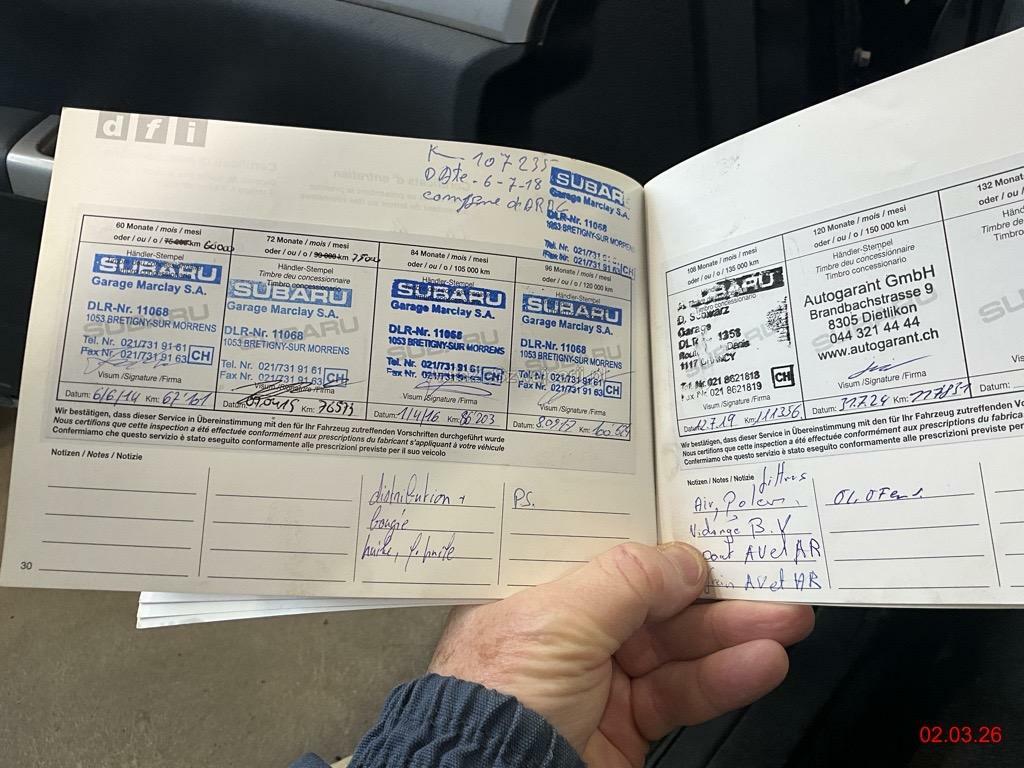 dfi
K 107235
Date - 6-7-18
SUBAR
Garage Marclay S.A.
DLR-Nr. 11068
1053 BRETIGNY-SUR MORRENS
Tel. Nr. 021/731
Fax Nr. 021/731 91 63 CH
60 Monate / mois / mesi
oder / ou / o / 75 000 km 60000
Händler-Stempel
Timbre du concessionnaire
SUBARU
Garage Marclay S.A.
DLR-Nr. 11068
1053 BRETIGNY-SUR MORRENS
Tel. Nr. 021/731 91 61
Fax Nr. 021/731 91 63 CH
Visum /Signature /Firma
Datum: 6/6/14 Km: 67'101
72 Monate / mois / mesi
oder / ou / o / 90 000 km 75000
Händler-Stempel
Timbre du concessionnaire
Timbro concessionario
SUBARU
Garage Marclay S.A.
DLR-Nr. 11068
1053 BRETIGNY-SUR MORRENS
Tel. Nr. 021/731 91 61
Fax Nr. 021/731 91 63 CH
Visum /Signature /Firma
Datum: Km:
84 Monate / mois / mesi
oder / ou / o / 105 000 km
Händler-Stempel
SUBARU
Garage Marclay S.A.
DLR-Nr. 11068
1053 BRETIGNY-SUR MORRENS
Tel. Nr. 021/731 91 61
Fax Nr. 021/731 91 63 CH
Visum /Signature /Firma
Datum: 11/4/16 Km: 86'203
96 Monate / mois / mesi
oder / ou / o / 120 000 km
Händler-Stempel
SUBARU
Garage Marclay S.A.
DLR-Nr. 11068
1053 BRETIGNY-SUR MORRENS
Tel. Nr. 021/731 91 61
Fax Nr. 021/731 91 63 CH
Visum /Signature /Firma
Datum: Km:
Wir bestätigen, dass dieser Service in Übereinstimmung mit den für Ihr Fahrzeug zutreffenden Vorschriften durchgeführt wurde
Nous certifions que cette inspection a été effectuée conformément aux prescriptions du fabricant s'appliquant à votre véhicule
Confermiamo che questo servizio è stato eseguito conformemente alle prescrizioni previste per il suo veicolo
Notizen / Notes / Notizie
distribution +
bougie
huile, f. huile
PS.
30
108 Monate / mois / mesi
oder / ou / o / 135 000 km
D. Schwarz
Garage
DLR 1358
Tel Nr. 021 8621818
Fax Nr. 021 8621819 CH
Visum /Signature /Firma
Datum: 12.7.19 Km: 111356
120 Monate / mois / mesi
oder / ou / o / 150 000 km
Händler-Stempel
Timbre du concessionnaire
Timbro concessionario
Autogarant GmbH
Brandbachstrasse 9
8305 Dietlikon
044 321 44 44
www.autogarant.ch
Visum /Signature /Firma
Datum: 31.7.24 Km:
132 Monate
oder / ou / o /
Händler
Timbre du
Timbro
SUBARU
Visum /Si
Datum:
Wir bestätigen, dass dieser Service in Übereinstimmung mit den für Ihr Fahrzeug zutreffenden
Nous certifions que cette inspection a été effectuée conformément aux prescriptions du fabricant
Confermiamo che questo servizio è stato eseguito conformemente alle prescrizioni previste per
Notizen / Notes / Notizie
filtres
Air, Polen,
Vidange B.V
pont AV et AR
AV et AR
02.03.26